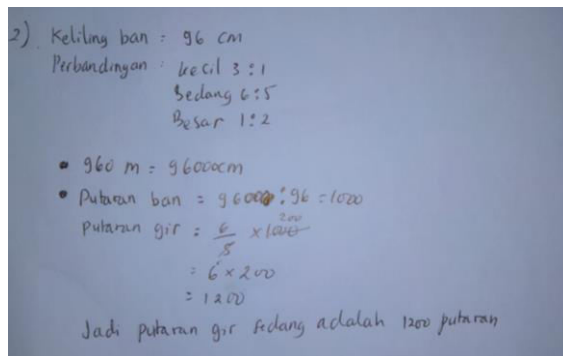 2) Keliling ban = 96 cm
Perbandingan : kecil 3:1
Sedang 6:5
Besar 1:2
• 960 m = 96000cm
• Putaran ban = 96000 : 96 = 1000
Putaran gir = 6/5 × 1000 200
= 6 × 200
= 1200
Jadi putaran gir sedang adalah 1200 putaran